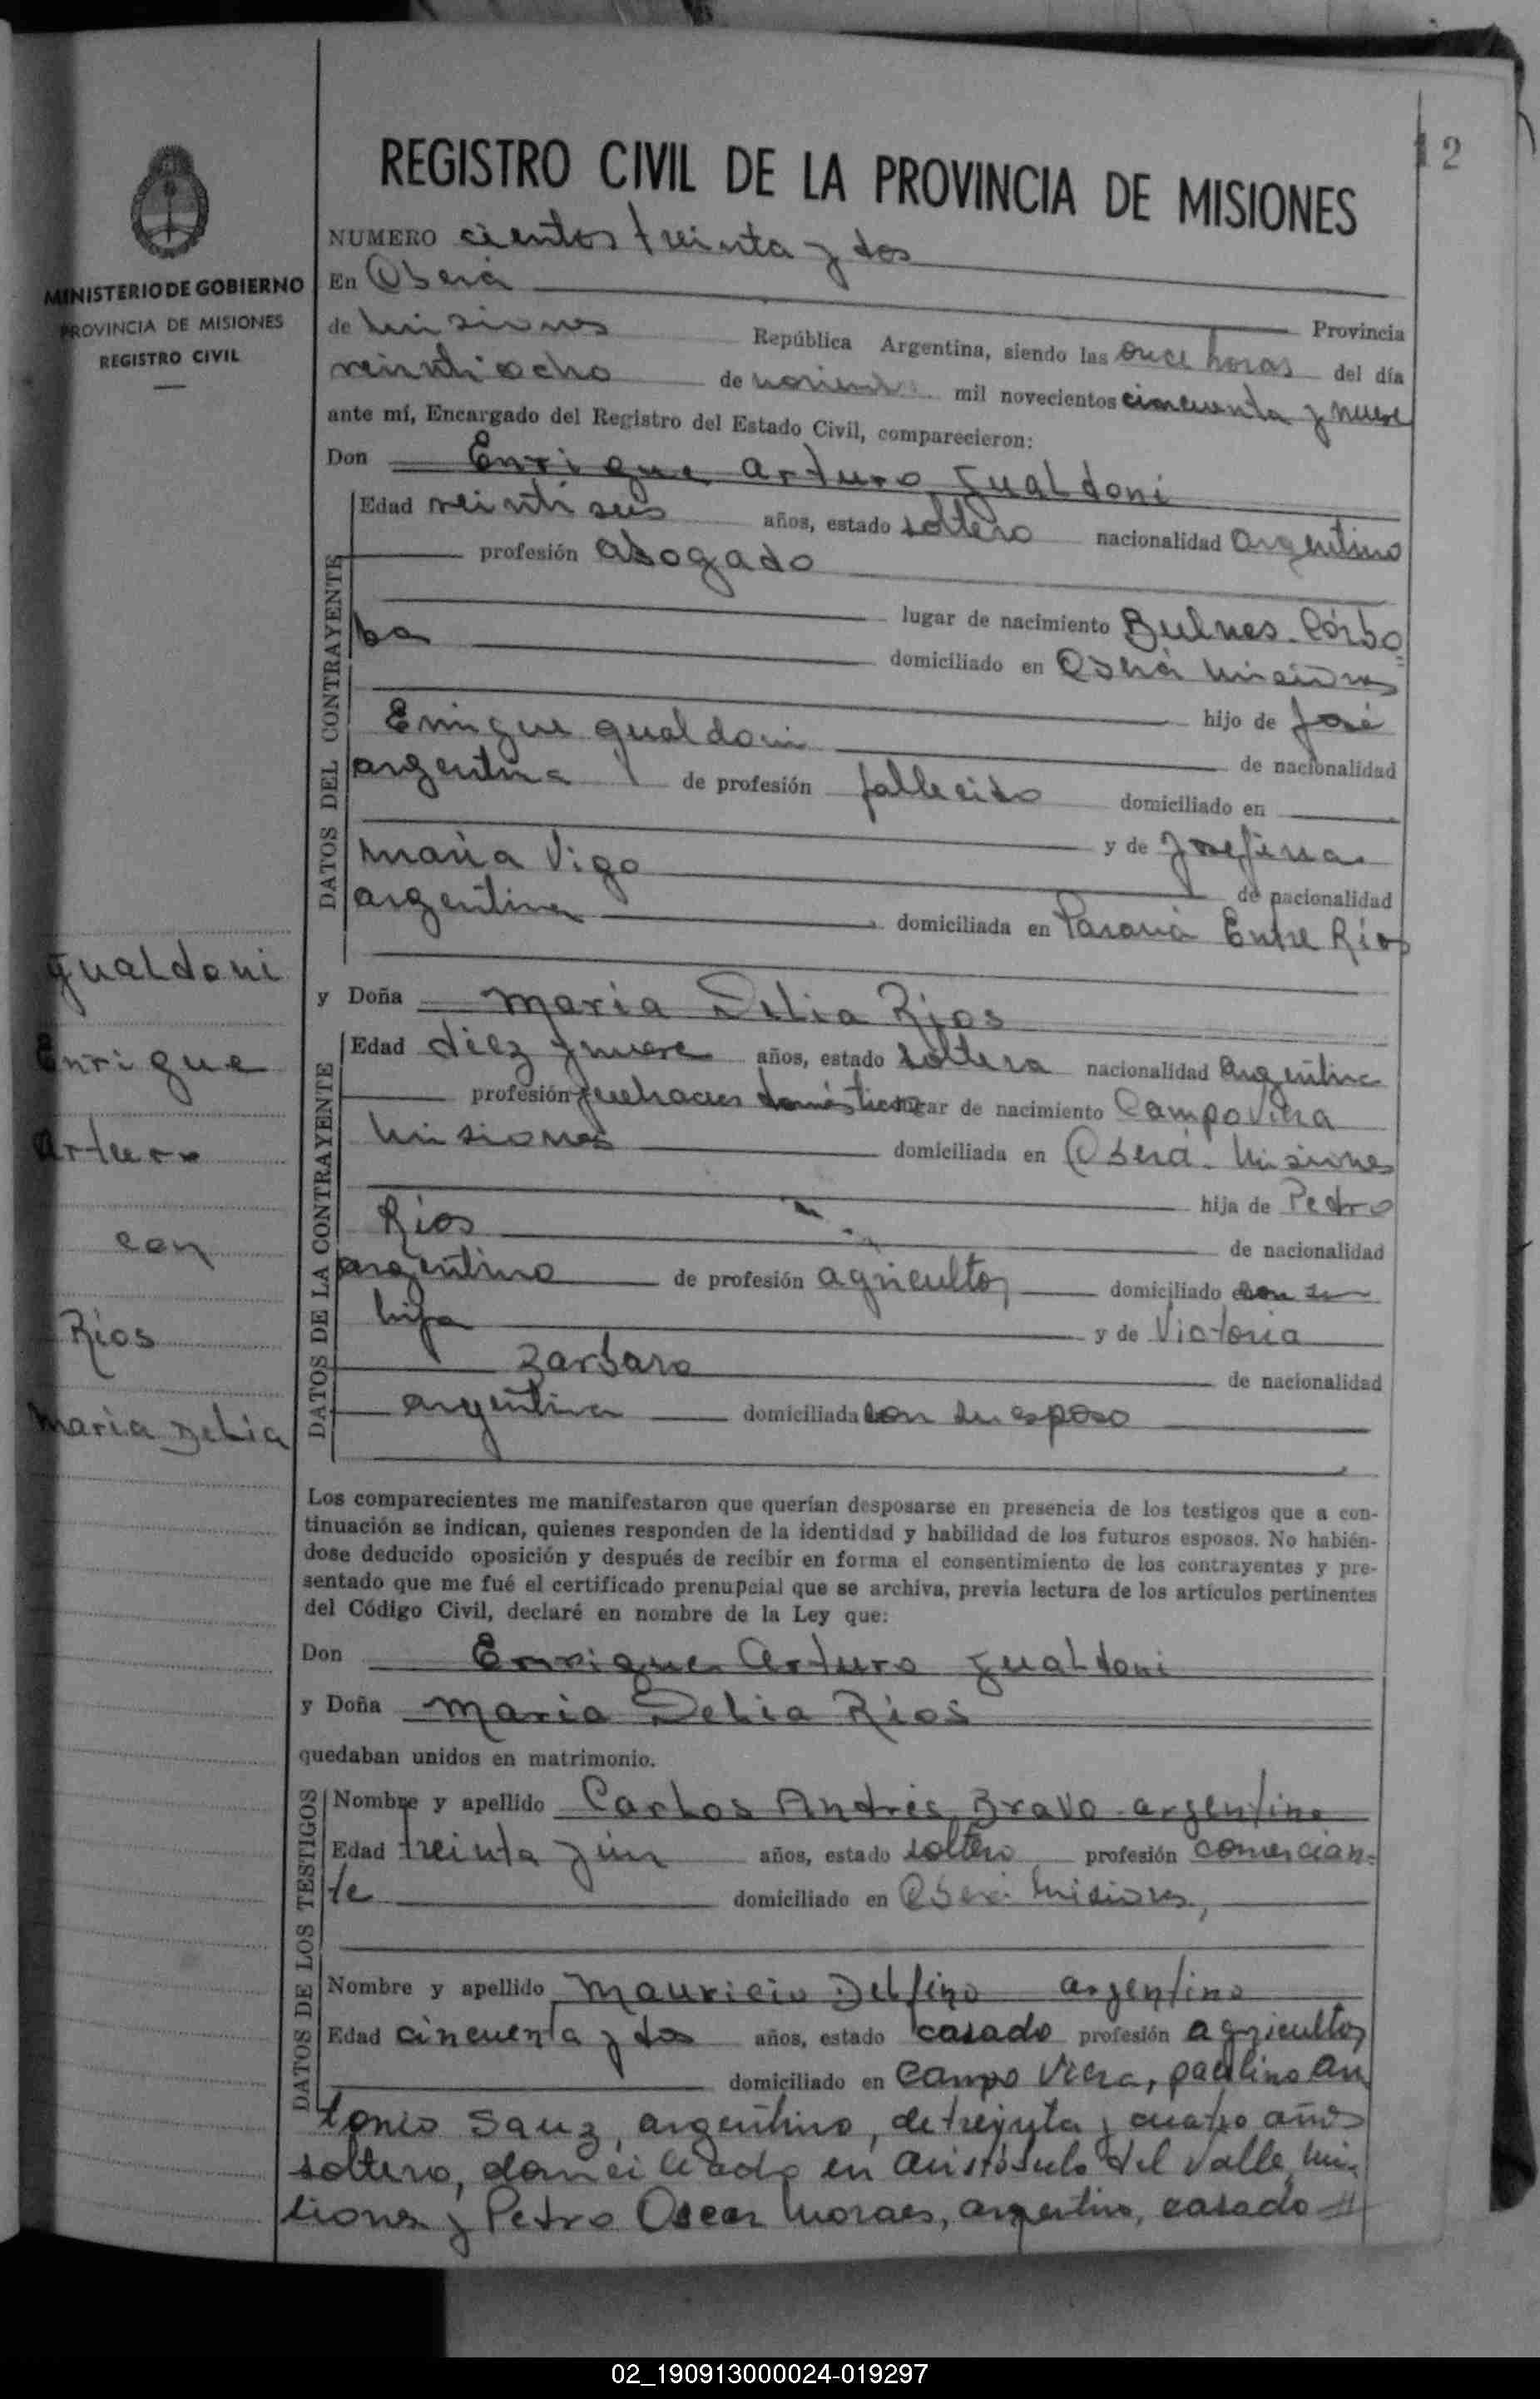 12
REGISTRO CIVIL DE LA PROVINCIA DE MISIONES
MINISTERIO DE GOBIERNO
PROVINCIA DE MISIONES
REGISTRO CIVIL
NUMERO cientos treinta y dos
En Oberá Provincia
de Misiones República Argentina, siendo las once horas del día
veintiocho de noviembre mil novecientos cincuenta y nueve
ante mí, Encargado del Registro del Estado Civil, comparecieron:
Don Enrique Arturo Gualdoni
DATOS DEL CONTRAYENTE
Edad veintiseis años, estado soltero nacionalidad argentino
profesión abogado
lugar de nacimiento Bulnes - Córdo-
ba domiciliado en Oberá Misiones
hijo de José
Enrique Gualdoni de nacionalidad
argentina de profesión fallecido domiciliado en
y de Josefina
María Vigo de nacionalidad
argentina domiciliada en Paraná Entre Ríos
Gualdoni
Enrique
Arturo
con
Ríos
María Delia
y Doña María Delia Ríos
DATOS DE LA CONTRAYENTE
Edad diez y nueve años, estado soltera nacionalidad argentina
profesión quehaceres domésticos lugar de nacimiento Campo Viera
Misiones domiciliada en Oberá - Misiones
hija de Pedro
Ríos de nacionalidad
argentino de profesión agricultor domiciliado con su
hija y de Victoria
Barbaro de nacionalidad
argentina domiciliada con su esposo
Los comparecientes me manifestaron que querían desposarse en presencia de los testigos que a con-
tinuación se indican, quienes responden de la identidad y habilidad de los futuros esposos. No habién-
dose deducido oposición y después de recibir en forma el consentimiento de los contrayentes y pre-
sentado que me fué el certificado prenupcial que se archiva, previa lectura de los artículos pertinentes
del Código Civil, declaré en nombre de la Ley que:
Don Enrique Arturo Gualdoni
y Doña María Delia Ríos
quedaban unidos en matrimonio.
DATOS DE LOS TESTIGOS
Nombre y apellido Carlos Andrés Bravo - argentino
Edad treinta y un años, estado soltero profesión comercian-
te domiciliado en Oberá Misiones,
Nombre y apellido Mauricio Delfino argentino
Edad cincuenta y dos años, estado casado profesión agricultor
domiciliado en Campo Viera, paulino An
tonio Sauz, argentino, de treinta y cuatro años
soltero, domiciliado en Aristóbulo del Valle, Mi-
siones y Pedro Oscar Moraes, argentino, casado //
02_190913000024-019297